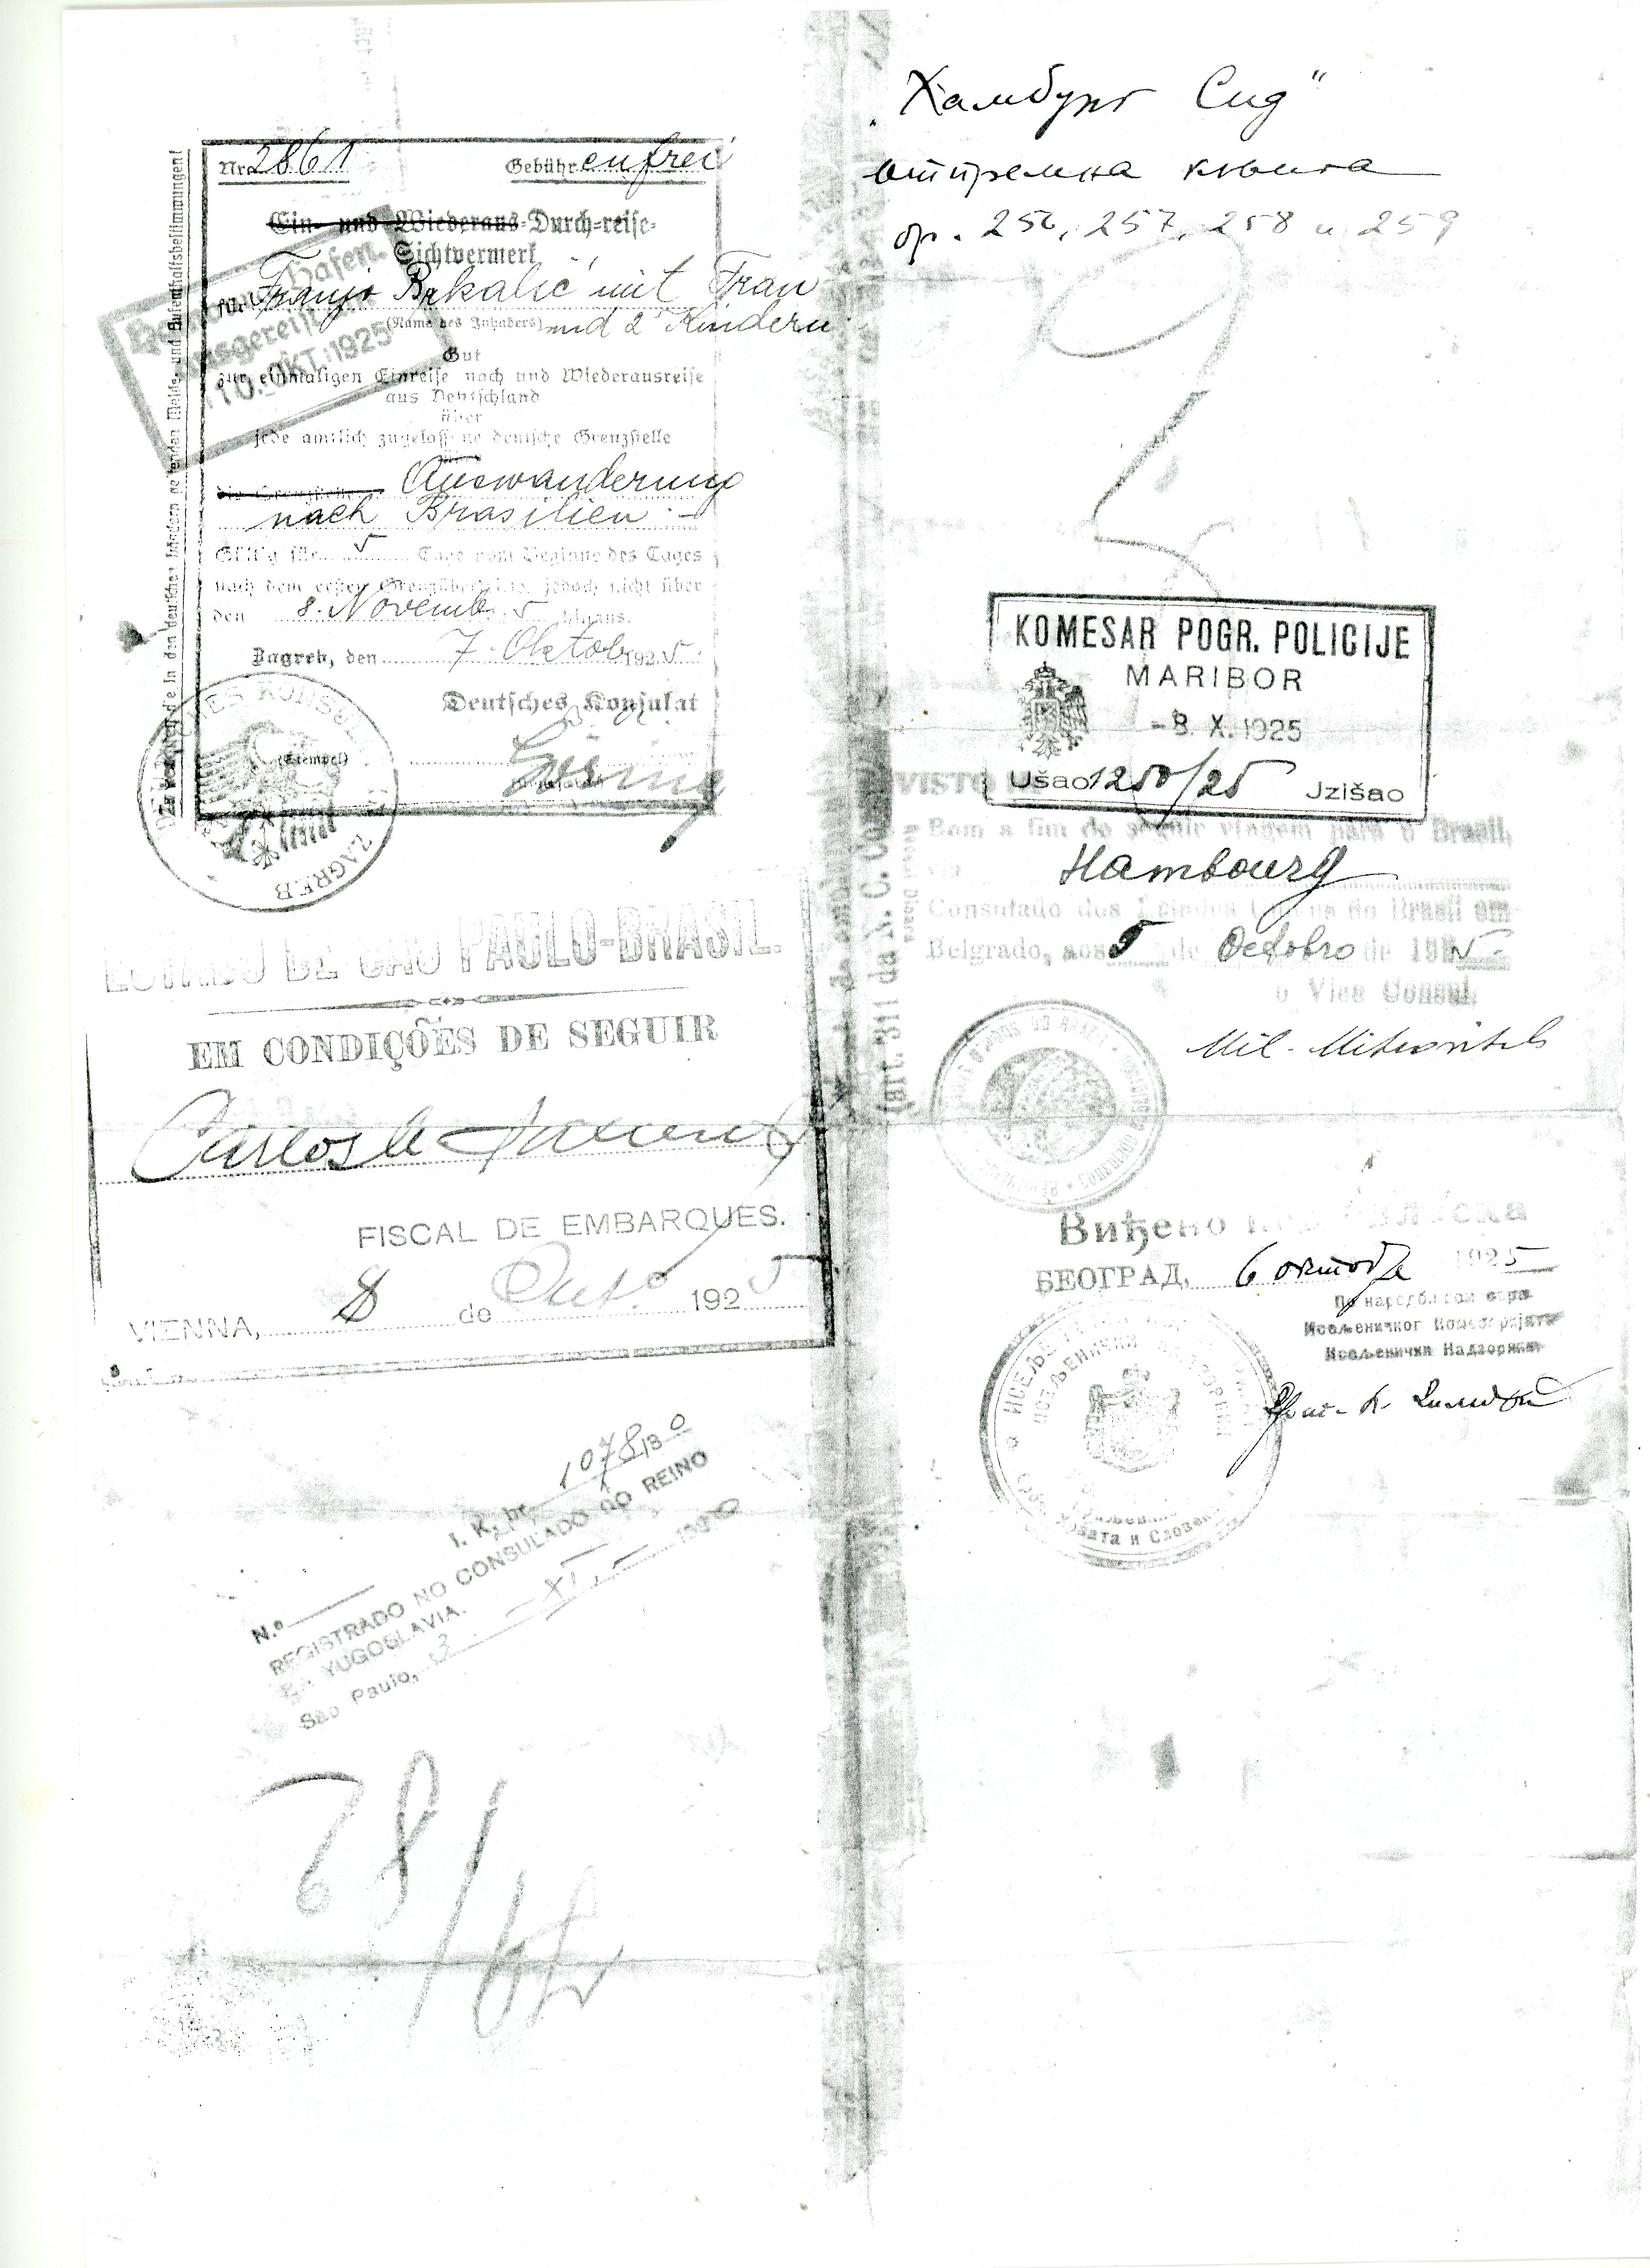 Nr. 2861 Gebühr enfrei
Ein- und Wiederaus-Durch-reise-
Sichtvermerk
für Franjo Brkalić mit Frau
(Name des Inhabers) und 2 Kindern
Gut
zur einmaligen Einreise nach und Wiederausreise
aus Deutschland
über
jede amtlich zugelassene deutsche Grenzstelle
die Grenzstelle Auswanderung
nach Brasilien.-
Gültig für 5 Tage vom Beginne des Tages
nach dem ersten Grenzübertritt, jedoch nicht über
den 8. Novemb. 5 hinaus.
Zagreb, den 7. Oktob. 1925.
Deutsches Konsulat
(Stempel)
ZAGREB
Hafen
ausgereist
10. OKT. 1925
die in den deutschen Ländern geltenden Melde- und Aufenthaltsbestimmungen!
ESTADO DE SÃO PAULO-BRASIL.
EM CONDIÇÕES DE SEGUIR
Carlos de
FISCAL DE EMBARQUES.
VIENNA, 8 de Outº 1925
I. K. br. 1078/30
N.º
REGISTRADO NO CONSULADO DO REINO
YUGOSLAVIA.
São Paulo, 3 - XI. - 1930
78/
„Хамбург Сид"
отпремна књига
бр. 256, 257, 258 и 259
KOMESAR POGR. POLICIJE
MARIBOR
-8. X. 1925
Ušao 1250/25 Jzišao
VISTO
Bom a fim de seguir viagem para o Brasil,
via Hambourg
Consulado dos Estados Unidos do Brasil em
Belgrado, aos 5 de Octobro de 1925.
o Vice Consul,
(art. 311 da N. C.
Виђено
БЕОГРАД, 6 октобра 1925
По наредби
Исељеничког Комесаријата
Исељенички Надзорник